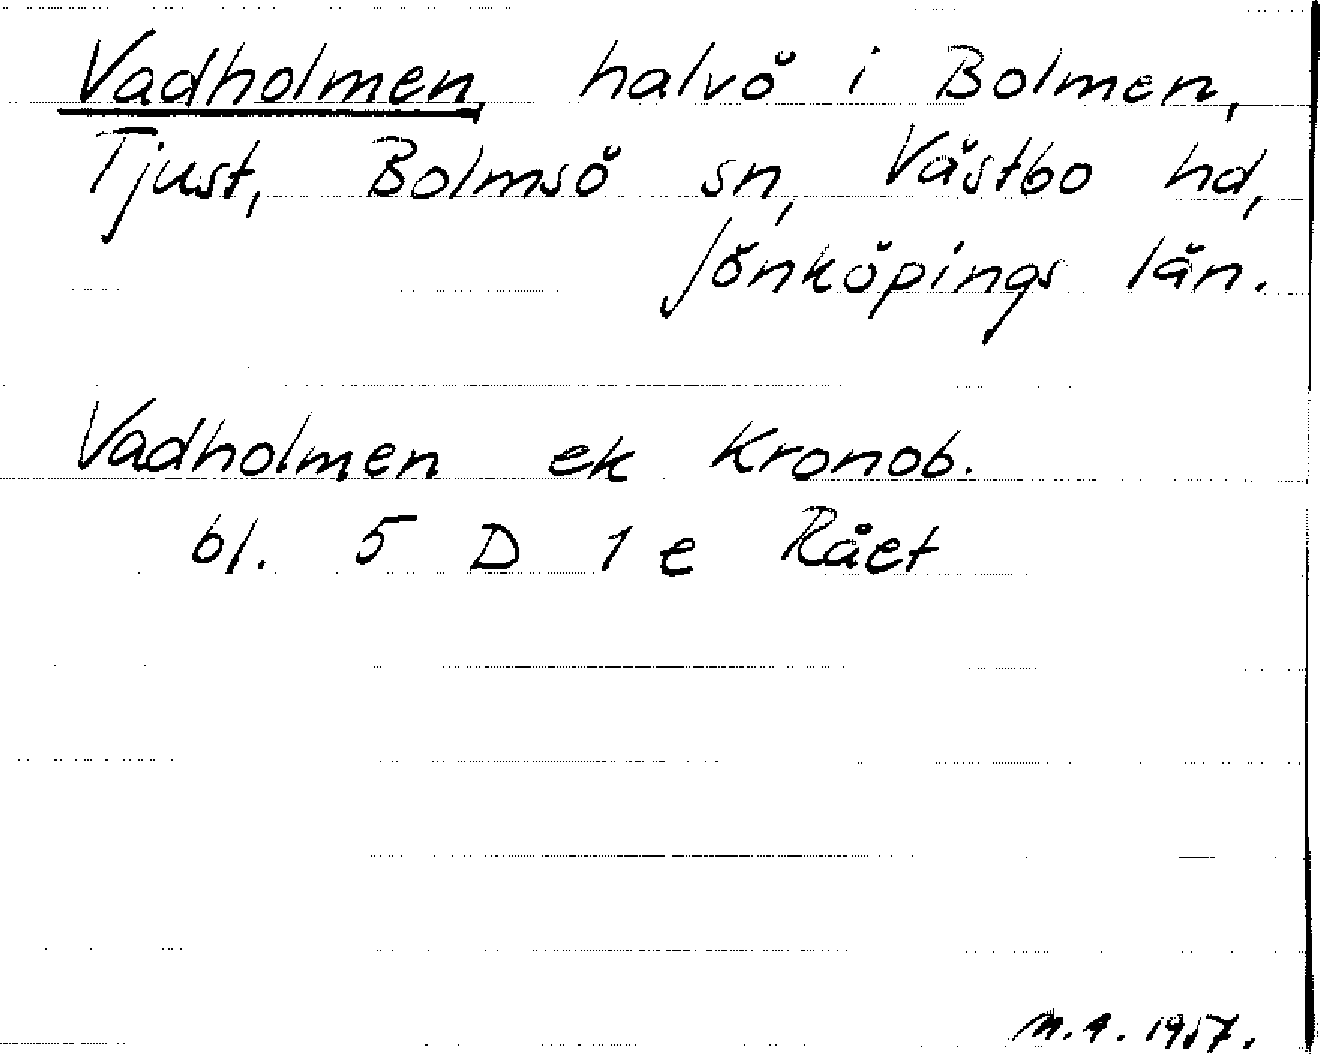 Vadholmen, halvö i Bolmen,
Tjust, Bolmsö sn, Västbo hd,
Jönköpings län.
Vadholmen ek Kronob.
bl. 5 D 1 e Rået
M.A. 1957.